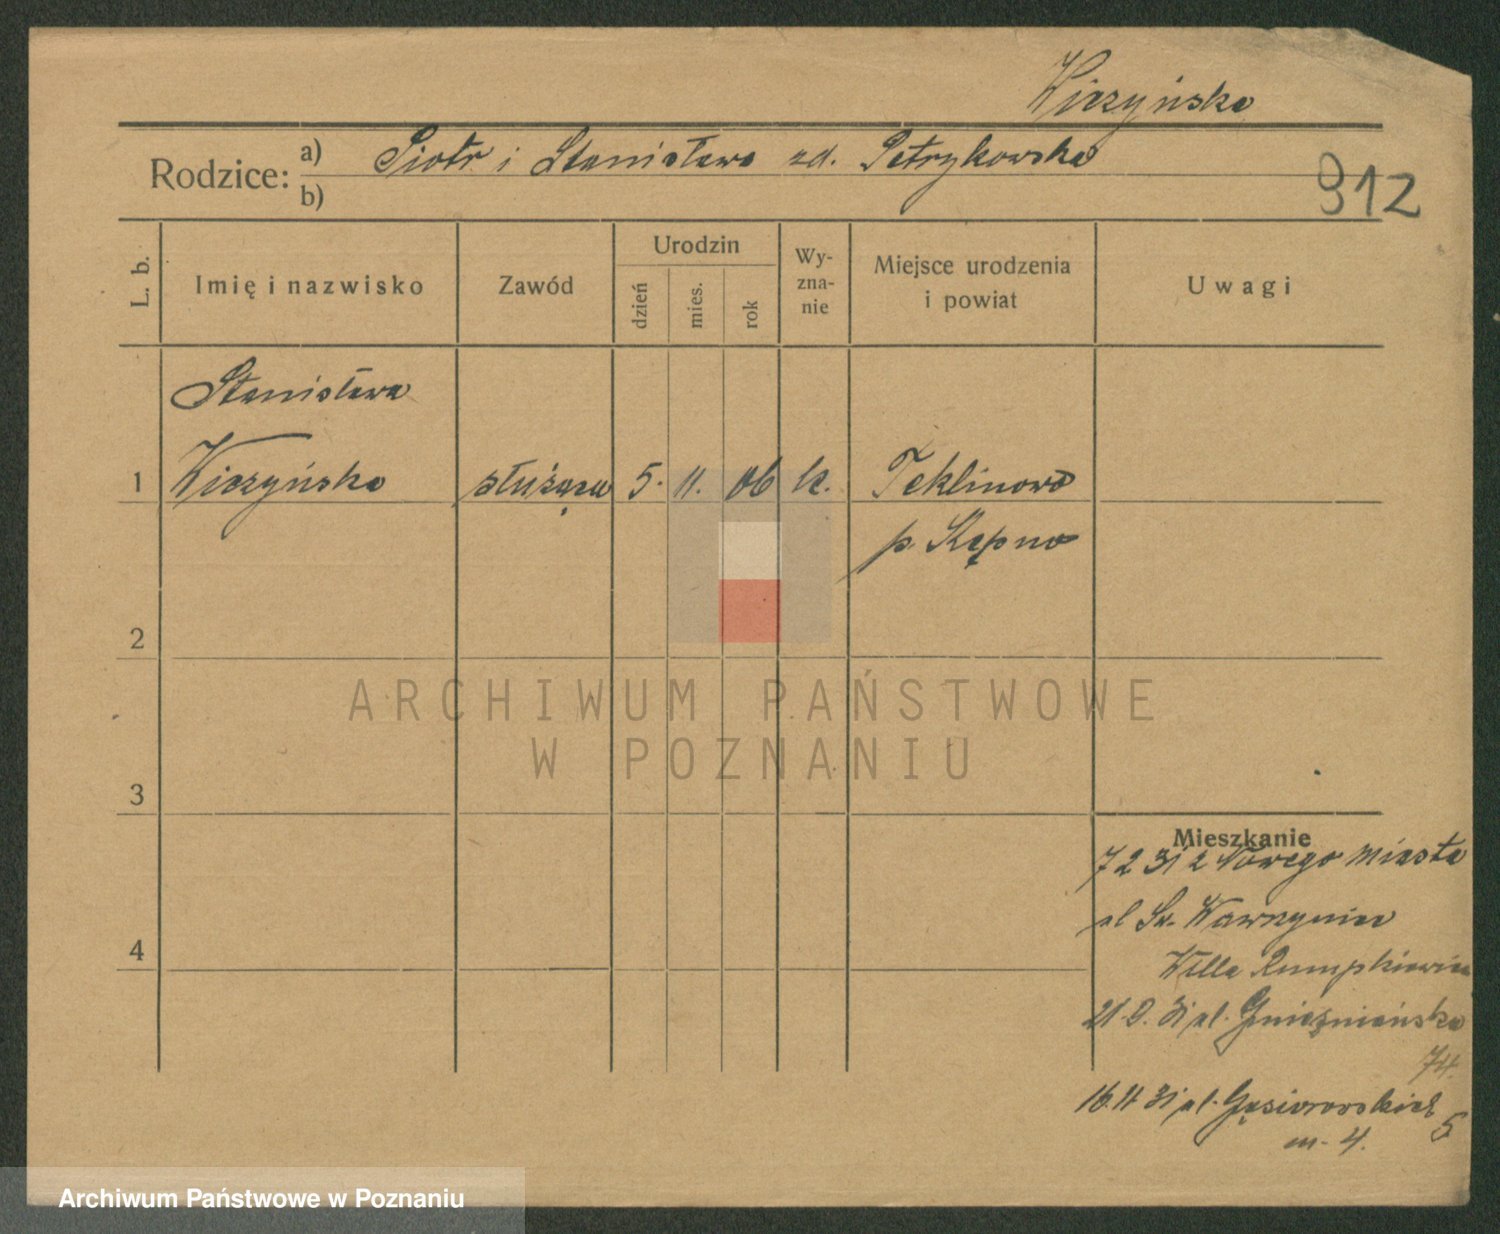 Wiczyńska
Rodzice: a) Piotr i Stanisława zd. Petrykowska
b)
912
L. b. Imię i nazwisko Zawód Urodzin dzień mies. rok Wy-zna-nie Miejsce urodzenia i powiat Uwagi
Stanisława
1 Wiczyńska służąca 5. 11. 06 k. Teklinowo
p. Kępno
2
ARCHIWUM PAŃSTWOWE
W POZNANIU
3
Mieszkanie
7 2 31 z Nowego Miasta
ul Św. Wawrzyniec
Willa
21.9.31 ul. Gnieźnieńska
74.
4
16.11 31 ul. Gąsiorowskich 5
m. 4.
Archiwum Państwowe w Poznaniu